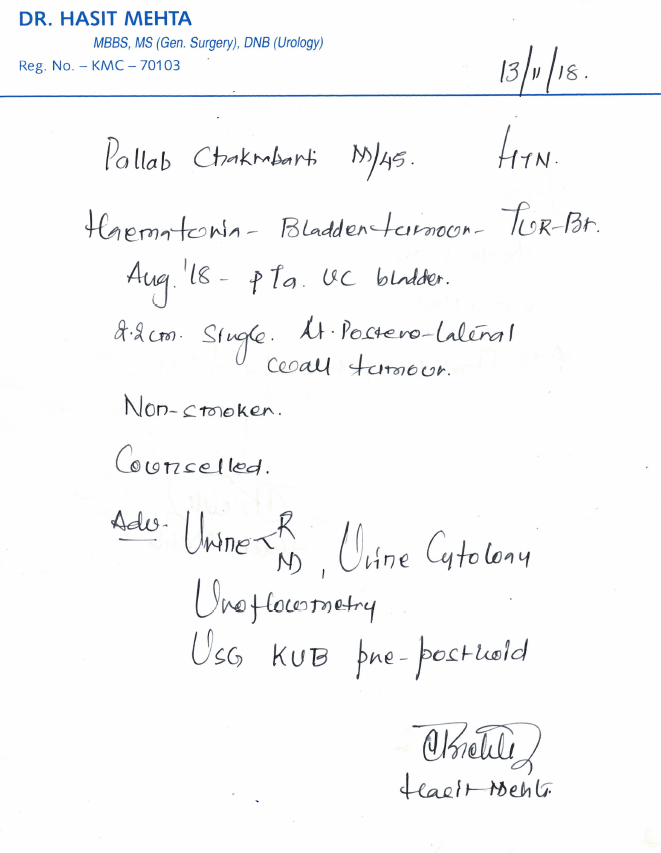 DR. HASIT MEHTA
MBBS, MS (Gen. Surgery), DNB (Urology)
Reg. No. – KMC – 70103
13/11/18.
Pallab Chakrabarti M/45. HTN.
Haematuria - Bladder tumour - TUR-Bt.
Aug. '18 - pTa. UC bladder.
2.2cm. Single. Lt. Postero-Lateral
wall tumour.
Non-smoker.
Counselled.
Adv. Urine R
M, Urine Cytology
Uroflowmetry
USG KUB pre-postvoid
Hasit Mehta